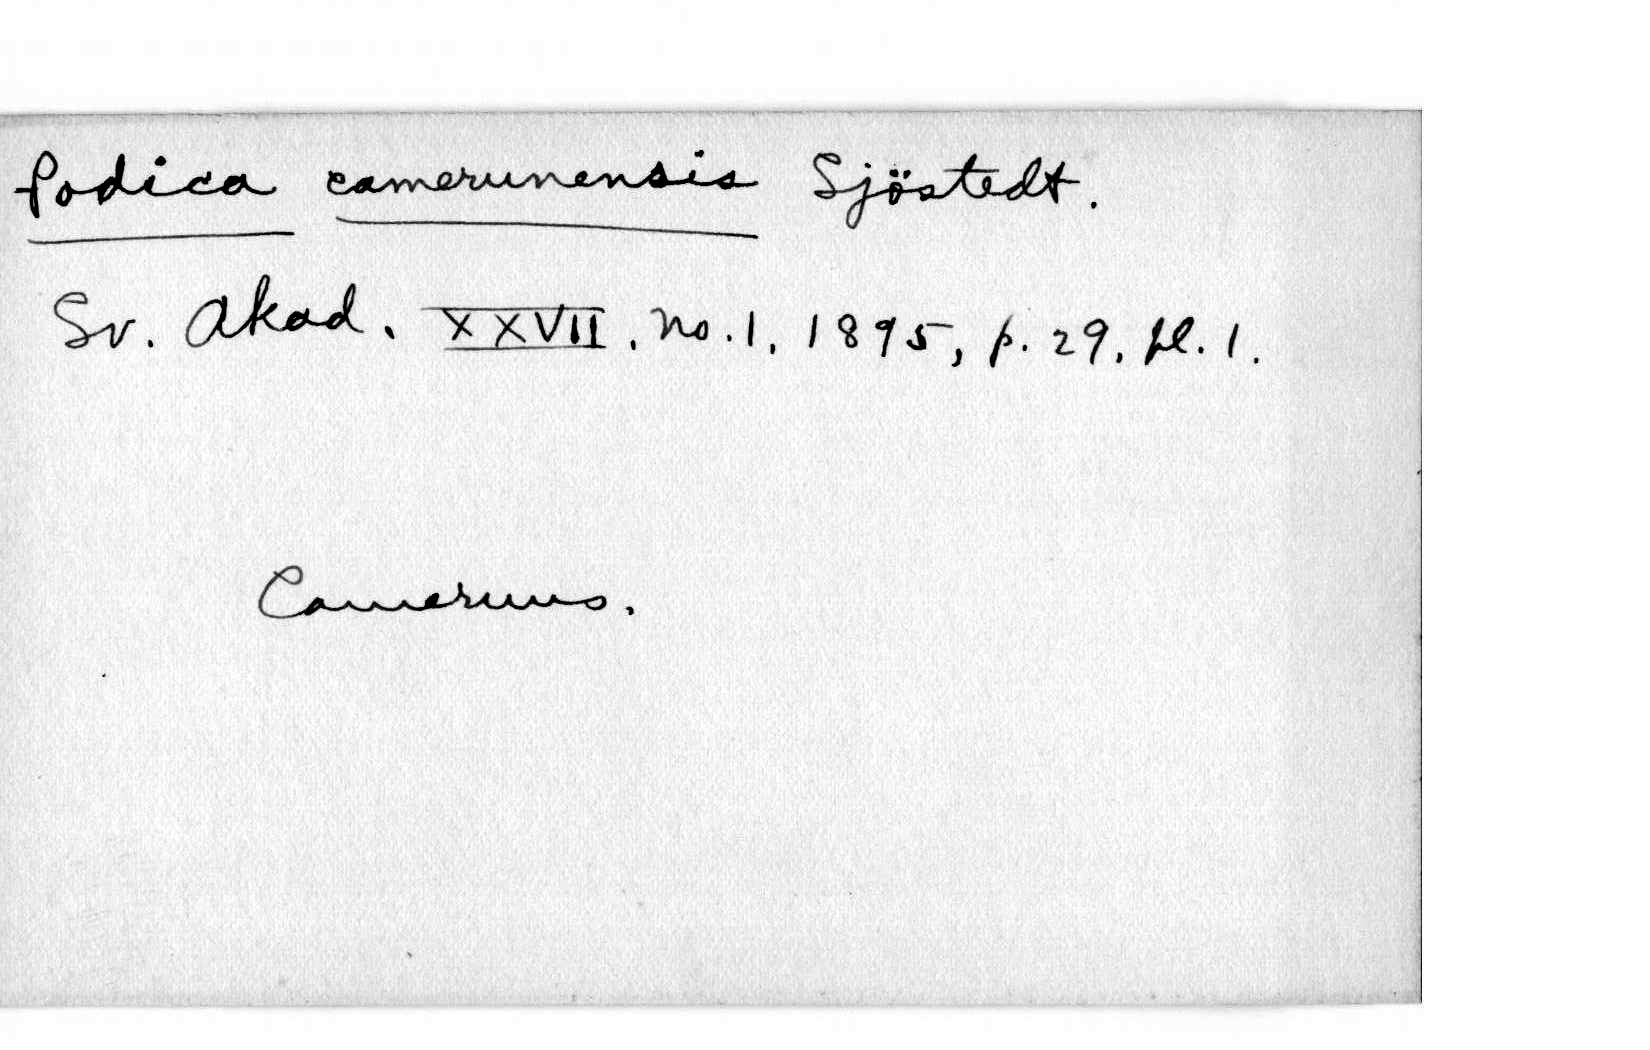 Podica camerunensis Sjöstedt.
Sv. Akad. XXVII. No. 1. 1895, p. 29. pl. 1.
Cameruns.